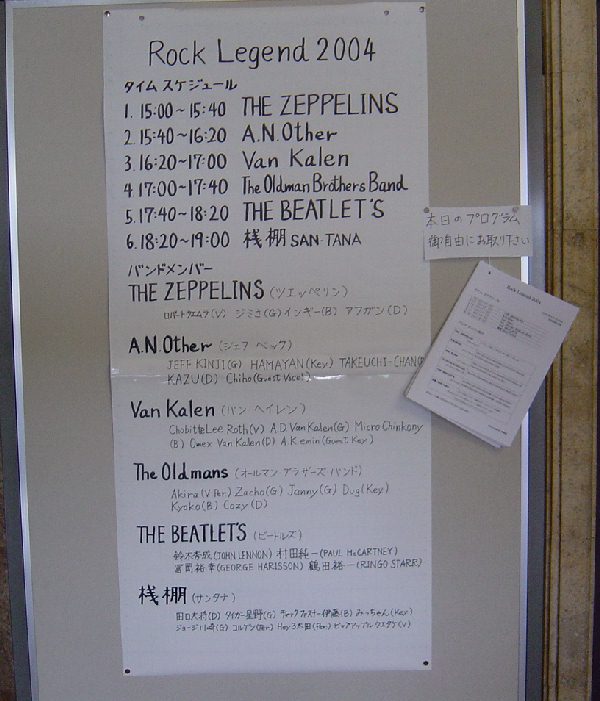 Rock Legend 2004
タイムスケジュール
1. 15:00~15:40 THE ZEPPELINS
2. 15:40~16:20 A.N.Other
3. 16:20~17:00 Van Kalen
4. 17:00~17:40 The Oldman Brothers Band
5. 17:40~18:20 THE BEATLET'S
6. 18:20~19:00 桟棚 SAN-TANA
バンドメンバー
THE ZEPPELINS (ツェッペリン)
(V) ジミさ(G) インギー(B) アフガン(D)
A.N.Other (ジェフ ベック)
JEFF KINJI(G) HAMAYAN(Key) TAKEUCHI-CHAN(B)
KAZU(D) Chiho(Guest Vice)
Van Kalen (バン ヘイレン)
Chobitto Lee Roth(V) A.D. Van Kalen(G) Micro Chinkony
(B) Cmex Van Kalen(D) A.K emin(Guest. Key)
The Oldmans (オールマン ブラザーズ バンド)
Akira(V Per) Zacho(G) Janny(G) Dug(Key)
Kyoko(B) Cozy(D)
THE BEATLET'S (ビートルズ)
鈴木秀成(JOHN LENNON) 村田純一(PAUL McCARTNEY)
冨岡裕幸(GEORGE HARISSON) 鶴田裕一(RINGO STARR)
桟棚 (サンタナ)
田口大将(D) タイガー星野(G) 伊藤(B) みっちゃん(Key)
本日のプログラム
御自由にお取り下さい
Rock Legend 2004